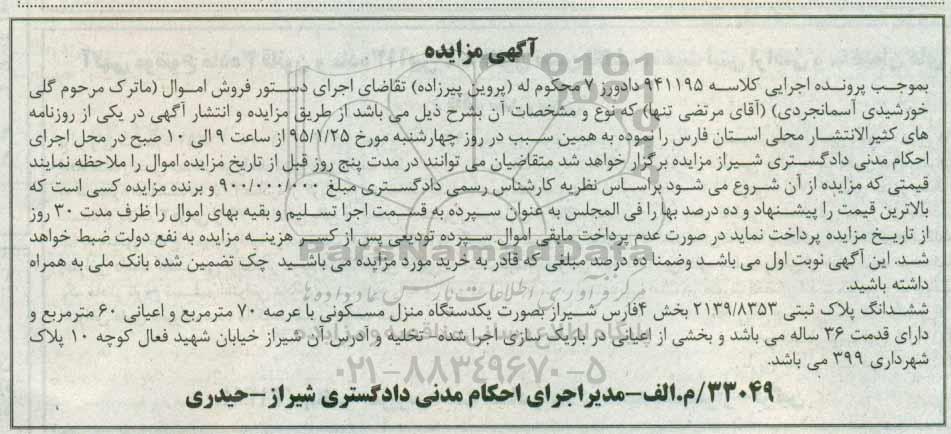 آگهی مزایده
بموجب پرونده اجرایی کلاسه ۹۴۱۱۹۵ دادورز ۷ محکوم له (پروین پیرزاده) تقاضای اجرای دستور فروش اموال (ماترک مرحوم گلی
خورشیدی آسمانجردی) (آقای مرتضی تنها) که نوع و مشخصات آن بشرح ذیل می باشد از طریق مزایده و انتشار آگهی در یکی از روزنامه
های کثیرالانتشار محلی استان فارس را نموده به همین سبب در روز چهارشنبه مورخ ۹۵/۱/۲۵ از ساعت ۹ الی ۱۰ صبح در محل اجرای
احکام مدنی دادگستری شیراز مزایده برگزار خواهد شد متقاضیان می توانند در مدت پنج روز قبل از تاریخ مزایده اموال را ملاحظه نمایند
قیمتی که مزایده از آن شروع می شود براساس نظریه کارشناس رسمی دادگستری مبلغ ۹۰۰/۰۰۰/۰۰۰ و برنده مزایده کسی است که
بالاترین قیمت را پیشنهاد و ده درصد بها را فی المجلس به عنوان سپرده به قسمت اجرا تسلیم و بقیه بهای اموال را ظرف مدت ۳۰ روز
از تاریخ مزایده پرداخت نماید در صورت عدم پرداخت مابقی اموال سپرده تودیعی پس از کسر هزینه مزایده به نفع دولت ضبط خواهد
شد. این آگهی نوبت اول می باشد وضمنا ده درصد مبلغی که قادر به خرید مورد مزایده می باشید چک تضمین شده بانک ملی به همراه
داشته باشید.
ششدانگ پلاک ثبتی ۲۱۳۹/۸۳۵۳ بخش ۴فارس شیراز بصورت یکدستگاه منزل مسکونی با عرصه ۷۰ مترمربع و اعیانی ۶۰ مترمربع و
دارای قدمت ۳۶ ساله می باشد و بخشی از اعیانی در باریک سازی اجرا شده تخلیه و آدرس آن شیراز خیابان شهید فعال کوچه ۱۰ پلاک
شهرداری ۳۹۹ می باشد.
۳۳۰۴۹/م.الف-مدیر اجرای احکام مدنی دادگستری شیراز-حیدری
ParsNamadData
مرکز فرآوری اطلاعات پارس نماد داده ها
پایگاه اطلاع رسانی مناقصه و مزایده
۰۲۱-۸۸۳۴۹۶۷۰-۵